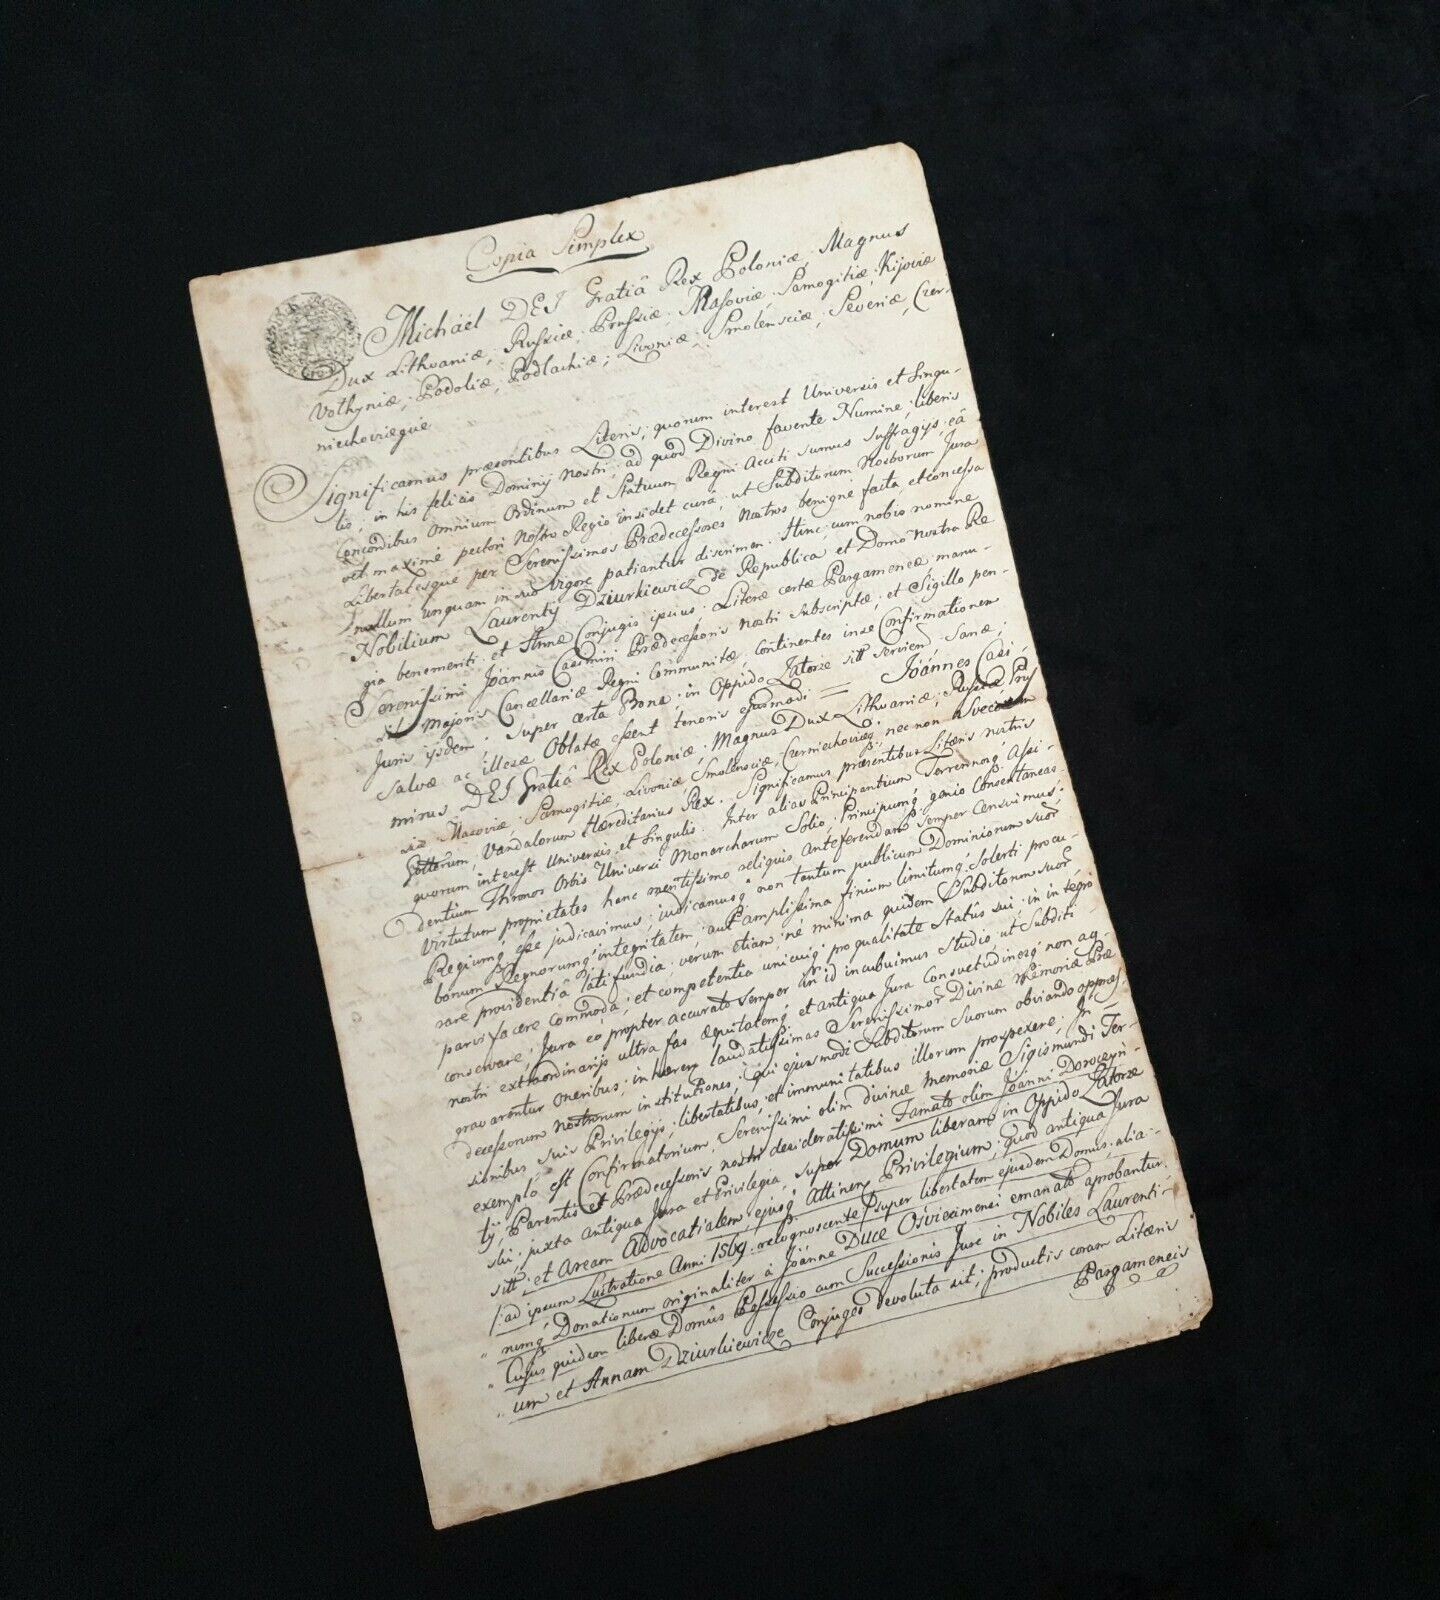 Copia Simplex
Michaël DEI Gratiâ Rex Poloniæ, Magnus
Dux Lithvaniæ, Russiæ, Prussiæ, Masoviæ, Samogitiæ, Kijoviæ
Volhyniæ, Podoliæ, Podlachiæ, Livoniæ, Smolensciæ, Severiæ, Czer-
niechoviæque
Significamus præsentibus Literis, quorum interest Universis et Singu-
lis, in his felicis Dominij Nostri, ad quod Divino favente Numine, liberis
Concordibus Omnium Ordinum et Statuum Regni acciti sumus suffragys, eâ
vel maximè pectori Nostro Regio insidet cura, ut Subditorum Nostrorum Jura
Libertatesque per Serenissimos Prædecessores Nostros benigne facta et concessa
nullum unquam in suo vigore patiantur discrimen. Hinc cum nobis nomine
Nobilium Laurentij Dziurkiewicz de Republica et Domo Nostra Re
gia benemeriti et Annæ Conjugis ipsius, Literæ certæ Pargameneæ manu
Serenissimi Joannis Casimiri Prædecessoris Nostri Subscriptæ, et Sigillo pen-
sili Majoris Cancellariæ Regni Communitæ, Continentes in se Confirmationem
Juris ijsdem, super certa Bona, in Oppido Zatorze sitt servien. Sanæ,
Salvæ ac illesæ Oblatæ essent tenoris ejusmodi = Joánnes Casi,
mirus DEI Gratiâ Rex Poloniæ, Magnus Dux Lithvaniæ, Russiæ Prus
siæ Masoviæ, Samogitiæ, Livoniæ Smolensciæ, Czerniechoviæq nec non Svecorum
Gottorum, Vandalorum Hæreditarius Rex. Significamus præsentibus Literis nostris
quorum interest Universis et Singulis. Inter alias Principantium Terrenorq Assi-
dentium Thronos Orbis Universi Monarcharum Solio, Principumq genio Consentaneas
Virtutum proprietates hanc meritissimo reliquis anteferendam semper Censuimus,
Regiumq esse judicavimus, judicamusq non tantum publicum Dominiorum suor
bonum Regnorumq integritatem, aut amplissima finium limitumq solerti procu-
rare providentiâ latifundia, verum etiam, ne minima quidem Subditorum suor
parvi facere Commoda, et competentia unicuiq pro qualitate Statûs sui, in integro
conservare, Jura eo propter accurato semper in id incubuimus Studio, ut Subditi
nostri extraordinarijs ultra fas æquitatemq et antiqua Jura Consvetudinesq non ag-
gravarentur oneribus, inhærens laudatissimas Serenissimor Divinæ Memoriæ Præ
decessorum nostrorum institutiones, qui ejusmodi Subditorum Suorum obviando oppres-
sionibus suis Privilegijs, libertatibus, et immunitatibus illorum prospexere, In
exemplo est Confirmatorium Serenissimi olim divinæ Memoriæ Sigismundi Ter-
tij, Parentis et Prædecessoris nostri desideratissimi Famato olim Joánni Doroczyń-
ski, juxta antiqua Jura et Privilegia, super Domum liberam in Oppido Zatorze
sitt, et Aream Advocatialem, ejusq Attinen, Privilegium, quod antiqua Jura
/: ad ipsum Lustratione Anni 1569 recognoscente :/ super libertatem ejusdem Domus, alia-
rumq Donationum originaliter à Joánne Duce Osviecimensi emanata aprobantur,
Cujus quidem liberæ Domûs Possessio cum Successionis Jure in Nobiles Laurenti-
um et Annam Dziurkiewicze Conjuges devoluta sit, productis coram Literis
Pargameneis